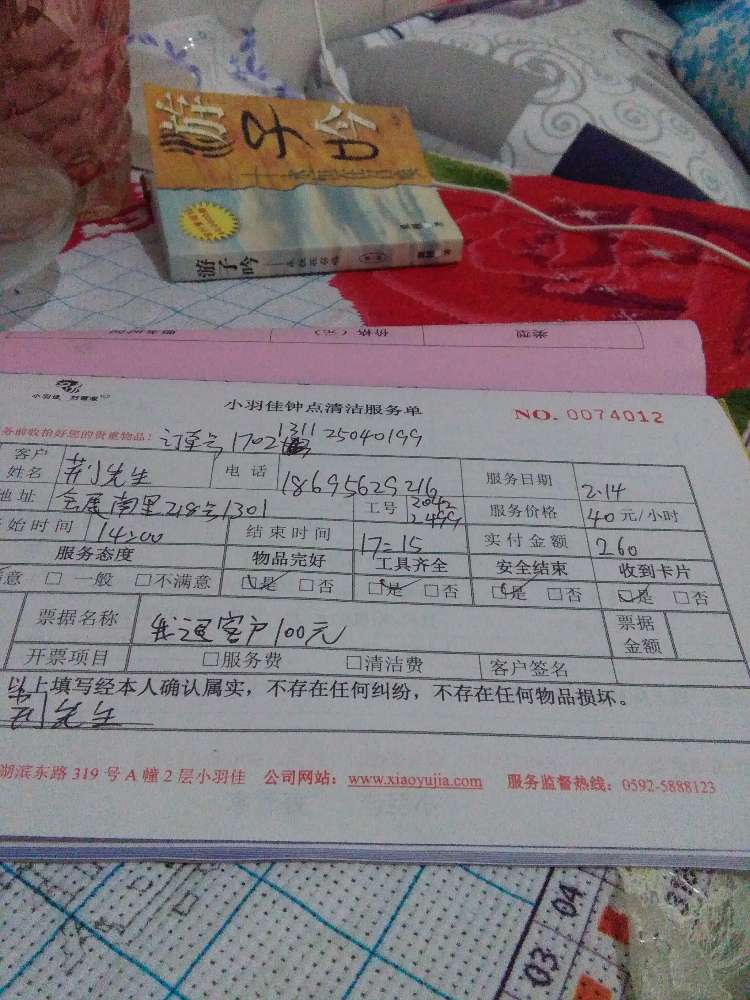 游子吟
游子吟
永恒在召唤
类型
价格(元)
小羽佳
小羽佳钟点清洁服务单
NO. 0074012
务前收拾好您的贵重物品!
订单号1702131125040199
客户姓名
先生
电话
18695629216
服务日期
2.14
地址
会展南里218号1301
工号
服务价格
40元/小时
始时间
14:00
结束时间
17:15
实付金额
260
服务态度
物品完好
工具齐全
安全结束
收到卡片
意 □一般 □不满意
□是 □否
□是 □否
□是 □否
□是 □否
票据名称
找还客户100元
票据金额
开票项目
□服务费
□清洁费
客户签名
以上填写经本人确认属实,不存在任何纠纷,不存在任何物品损坏。
先生
湖滨东路319号A幢2层小羽佳 公司网站:www.xiaoyujia.com 服务监督热线:0592-5888123
03
04